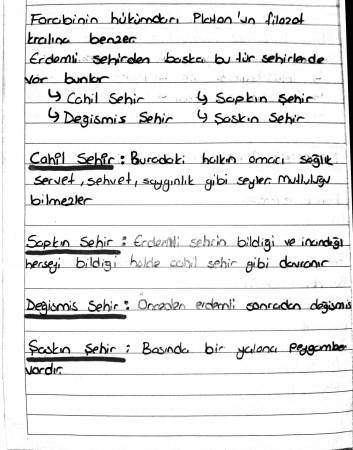 Farabinin hükümdarı Platon'un filozof
kralına benzer.
Erdemli şehirden başka bu tür şehirlerde
var bunlar
↳ Cahil Şehir ↳ Sapkın Şehir
↳ Değişmiş Şehir ↳ Şaşkın Şehir
Cahil Şehir : Buradaki halkın amacı sağlık
servet, şehvet, saygınlık gibi şeyler Mutluluğu
bilmezler
Sapkın Şehir : Erdemli şehrin bildiği ve inandığı
herşeyi bildiği halde cahil şehir gibi davranır
Değişmiş Şehir : Önceden erdemli sonradan değişmiş
Şaşkın Şehir : Başında bir yalancı peygamber
vardır.